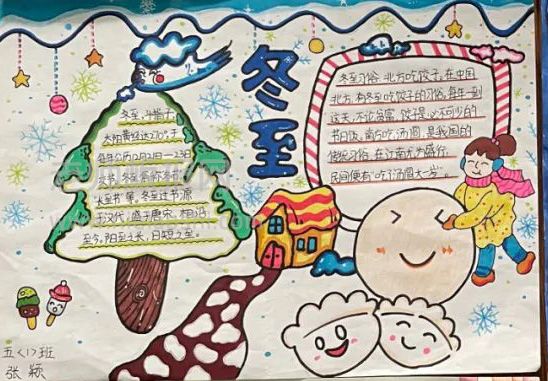 冬至
冬至,斗指子,
太阳黄经达270°于
每年公历12月21日—23日
交节,冬至有称“冬节”
“长至节”等,冬至过节源
于汉代,盛于唐宋,相沿
至今,阳至之长,日短之至。
冬至习俗:北方吃饺子,在中国
北方,有冬至吃饺子的习俗,每年一到
这天,不论贫富,饺子是必不可少的
节日饭,南方吃汤圆,是我国的
传统习俗,在江南尤为盛行,
民间便有“吃了汤圆大一岁”。
五〈1〉班
张颖